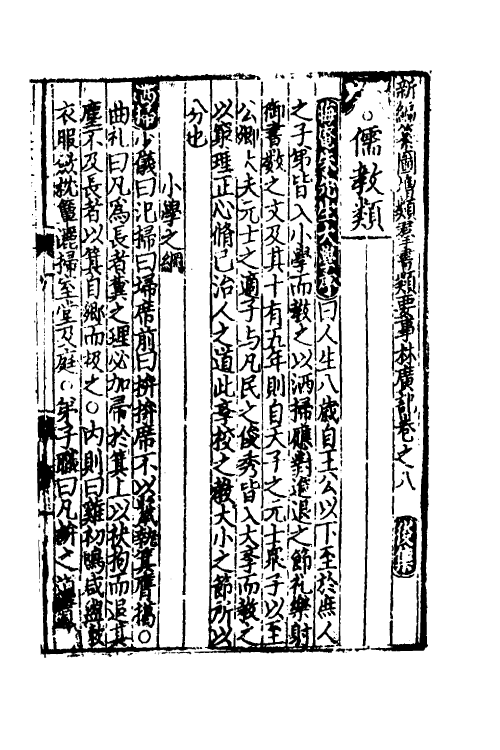 新編纂圖增類群書類要事林廣記卷之八 後集
○儒教類
晦菴朱先生大學序曰人生八歲自王公以下至於庶人
之子弟皆入小學而教之以洒掃應對進退之節礼樂射
御書數之文及其十有五年則自天子之元士衆子以至
公卿大夫元士之適子与凡民之俊秀皆入大學而教之
以窮理正心脩己治人之道此學校之教大小之節所以
分也
小學之綱
洒掃少儀曰汜掃曰埽席前曰拚拚席不以鬣執箕膺擖○
曲礼曰凡爲長者糞之理必加帚於箕上以袂拘而退其
塵不及長者以箕自鄉而扱之○内則曰雞初鳴咸盥漱
衣服斂枕簟灑掃室堂及庭○弟子職曰凡拚之